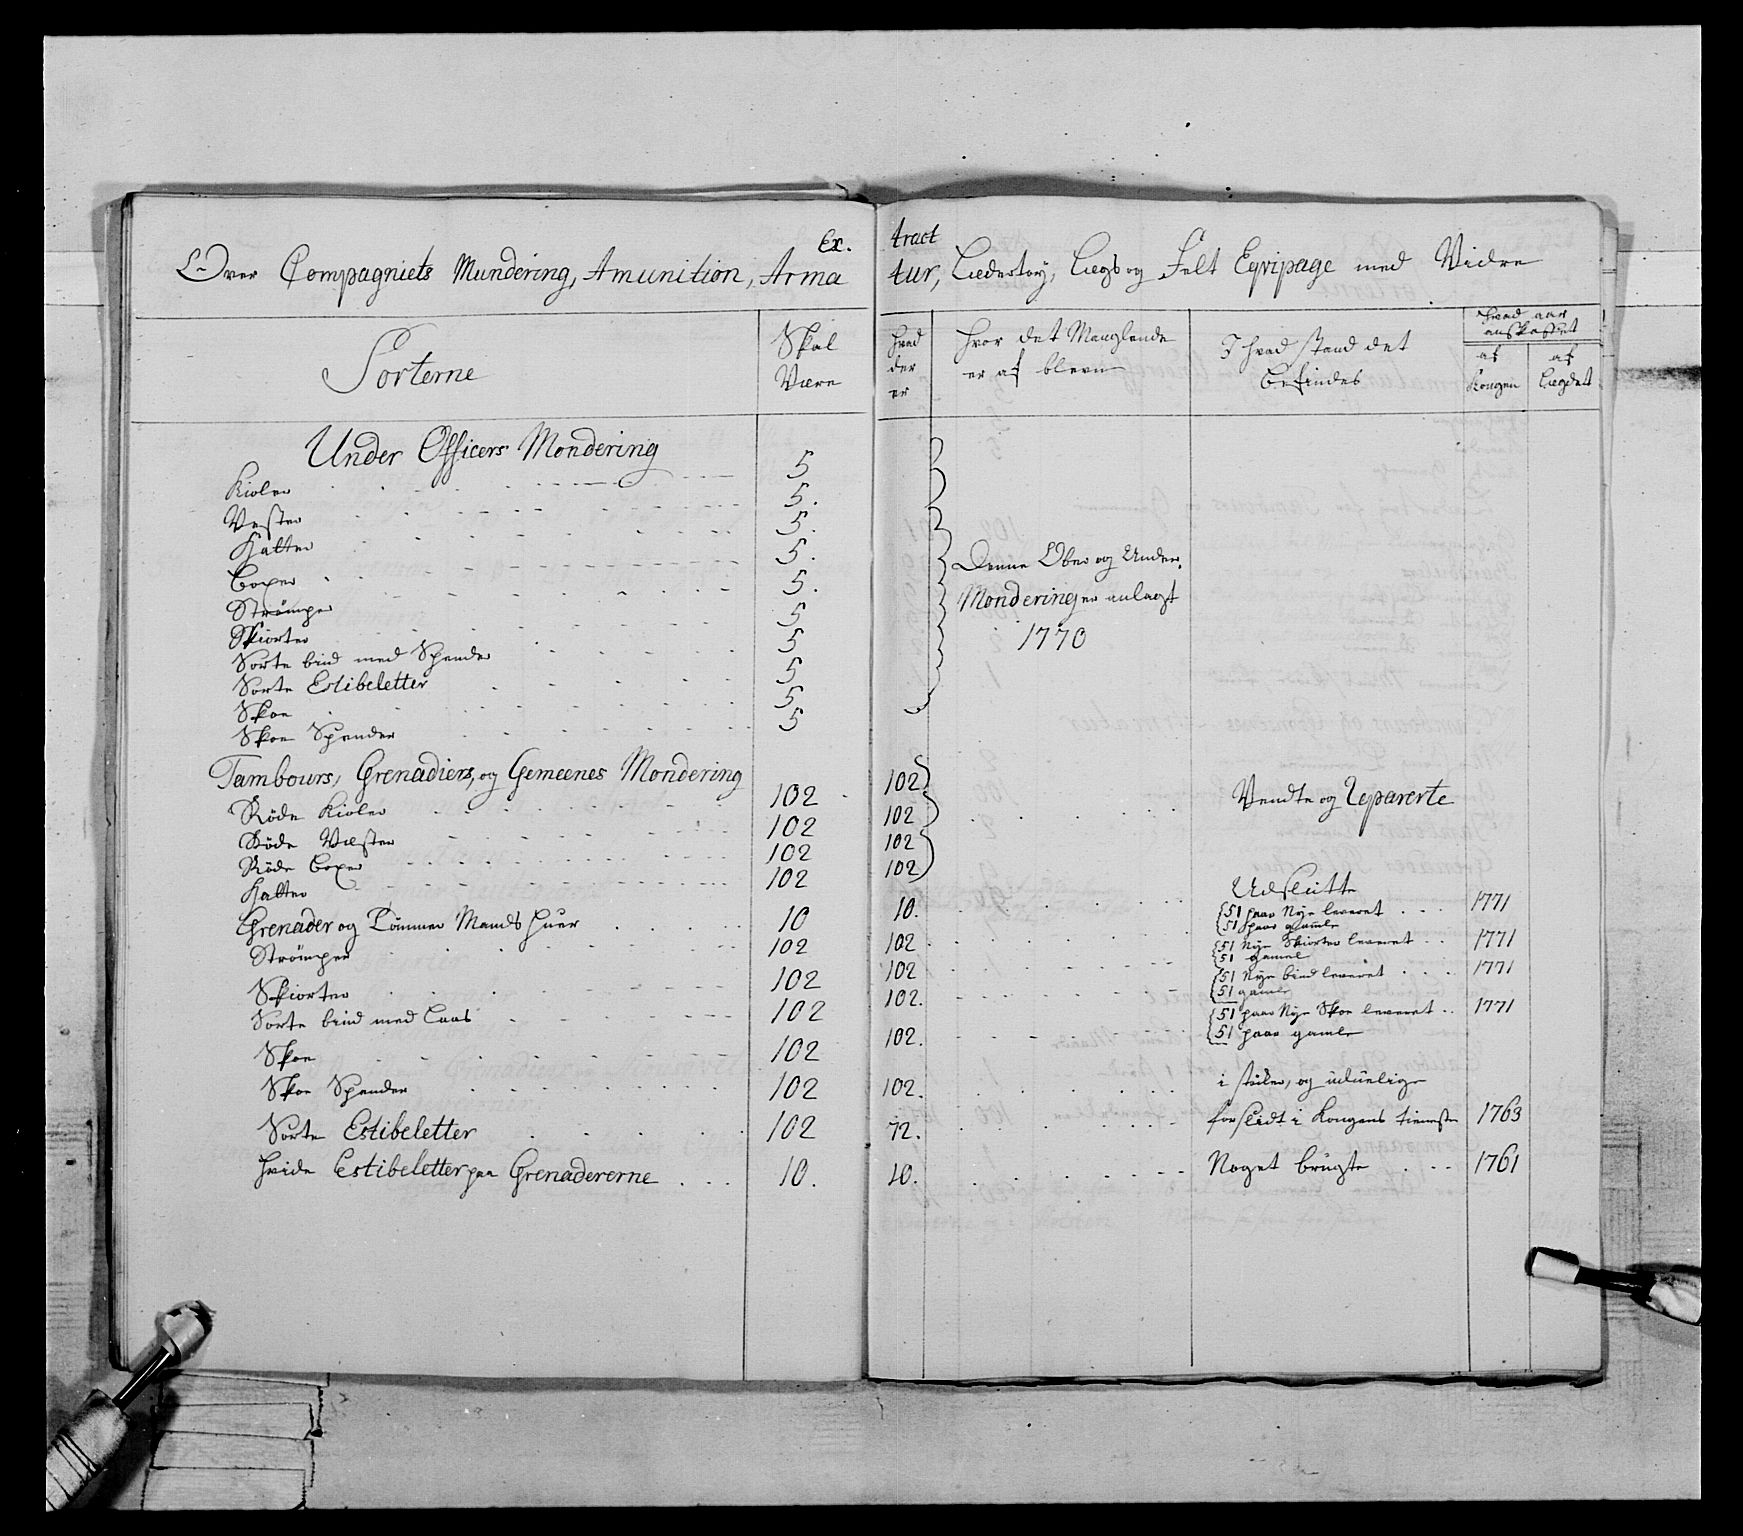 Extract
Over Compagniets Mundering, Amunition, Armatur, Lædertøy, Lægs og Felt Eqvipage med Videre
Sorterne
Skal Være
hvad der er
hvor det Manglende er af bleven
I hvad stand det befindes
Hvad aar anskaffet
af Kongen
af Lægdet
Under Officers Mondering
Kioler 5
Vester 5.
Hatter 5.
Boxer 5.
Strømper 5.
Skiorter 5
Sorte bind med Spender 5
Sorte Estibeletter 5
Skoe 5
Skoe Spender 5
Denne Ober og Under
Mondering er anlagt
1770
Tambours, Grenadiers, og Gemeenes Mondering
Røde Kioler 102 102
Røde Vester 102 102
Røde Boxer 102 102
Hatter 102 102
Vendte og Reparerte
Grenader og Tømmer Mands Huer 10 10. Udslitte
Strømper 102 102 51 paar Nye leveret 1771
51 paar gamle
Skiorter 102 102 51 Nye Skiorter leveret 1771
51 gamel
Sorte bind med Laas 102 102. 51 Nye bind leveret 1771
51 gamle
Skoe 102 102. 51 paar Nye Skoe leveret 1771
51 paar gamle
Skoe Spender 102 102. i støker, og uduelige
Sorte Estibeletter 102 72. forslidt i Kongens tieneste 1763
hvide Estibeletter paa Grenadererne 10. 10. Noget brugte 1761